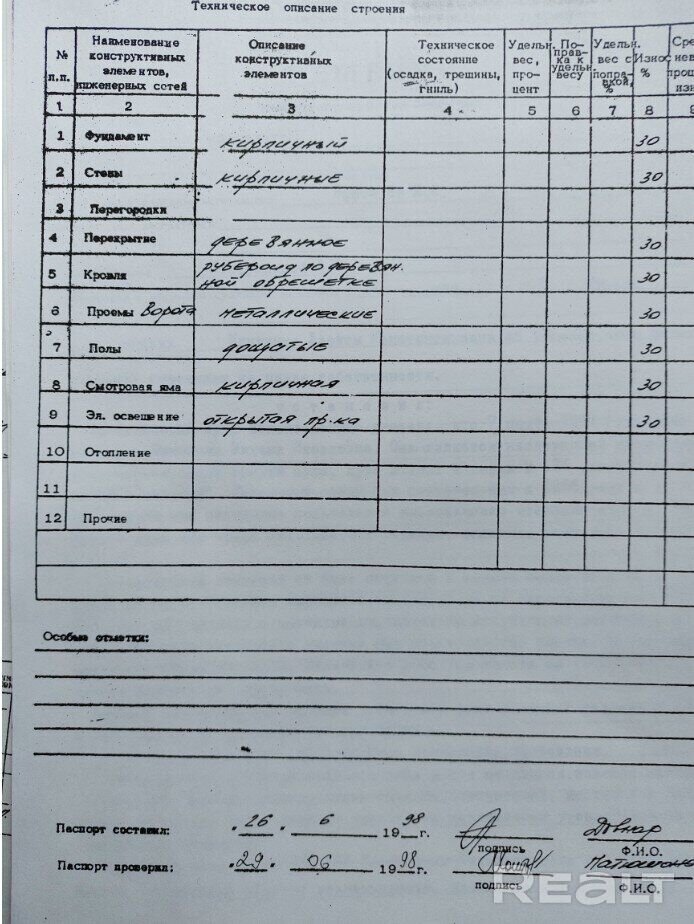 Техническое описание строения
№ п.п. Наименование конструктивных элементов, инженерных сетей Описание конструктивных элементов Техническое состояние (осадка, трещины, гниль) Удельн. вес, про- цент По- прав- ка к удельн. весу Удельн. вес с поправ- кой, % Износ %
1 2 3 4 5 6 7 8 9
1 Фундамент кирпичный 30
2 Стены кирпичные 30
3 Перегородки
4 Перекрытие деревянное 30
5 Кровля рубероид по деревян.
ной обрешетке 30
6 Проемы Ворота металлические 30
7 Полы дощатые 30
8 Смотровая яма кирпичная 30
9 Эл. освещение открытая пр-ка 30
10 Отопление
11
12 Прочие
Особые отметки:
Паспорт составил: "26" 6 1998 г.
подпись Ф.И.О.
Паспорт проверил: "29" 06 1998 г.
подпись Ф.И.О.
REALT